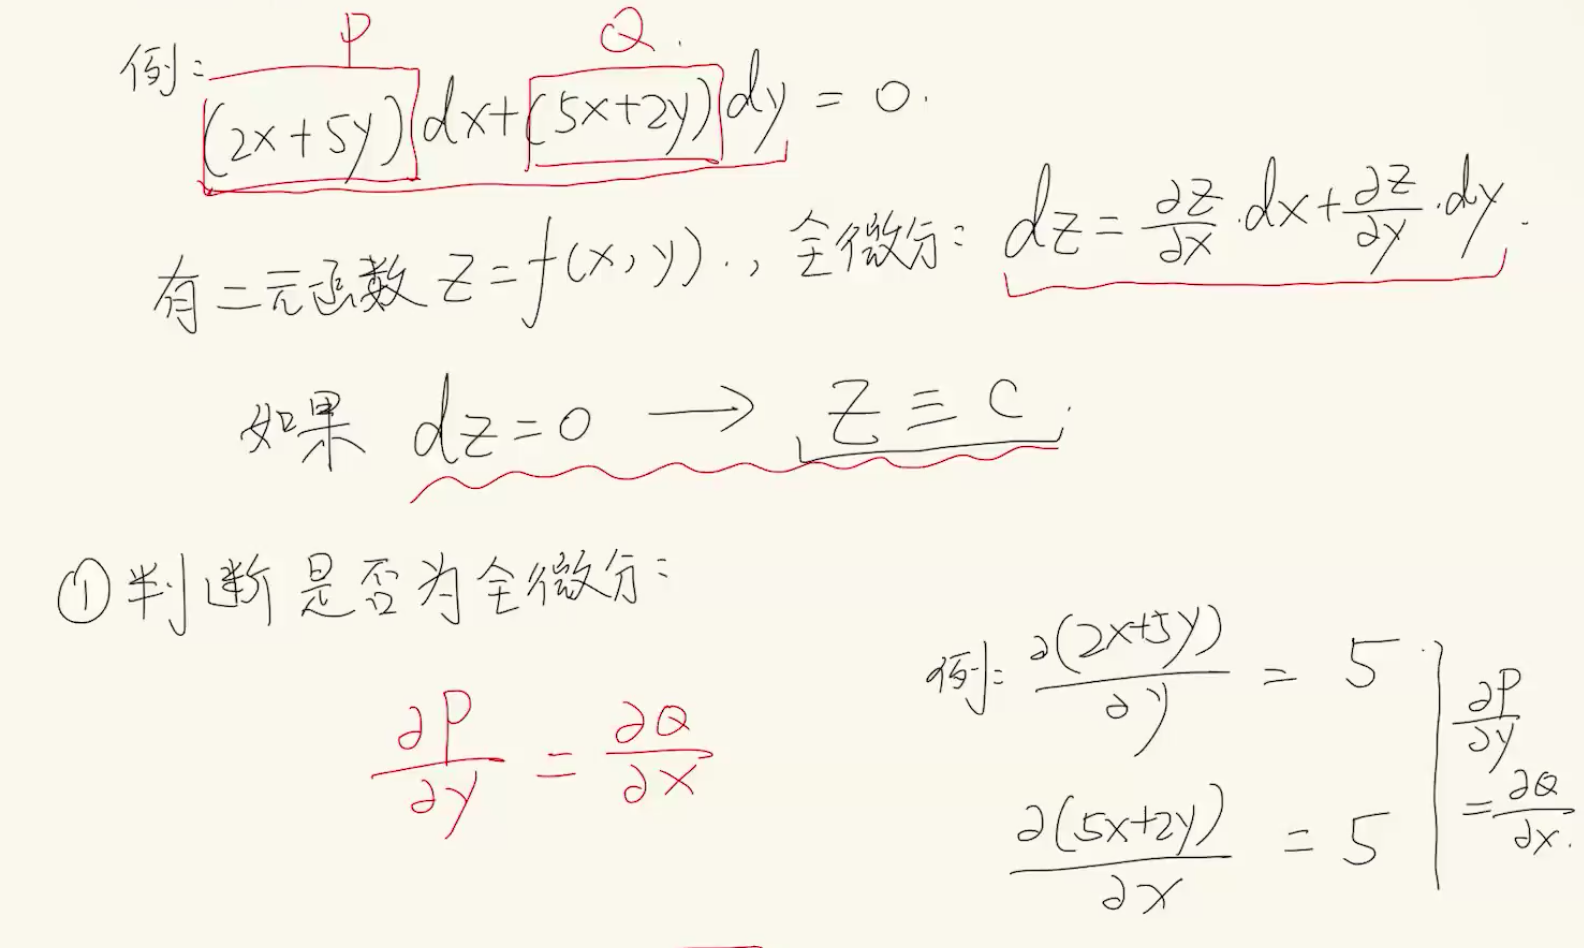 P Q.
例: (2x+5y)dx+(5x+2y)dy = 0.
有二元函数 Z=f(x,y)., 全微分: dz = ∂z/∂x·dx+∂z/∂y·dy.
如果 dz=0 → Z ≡ C.
①判断是否为全微分:
∂P/∂y = ∂Q/∂x
例: ∂(2x+5y)/∂y = 5
∂(5x+2y)/∂x = 5
∂P/∂y
=∂Q/∂x.